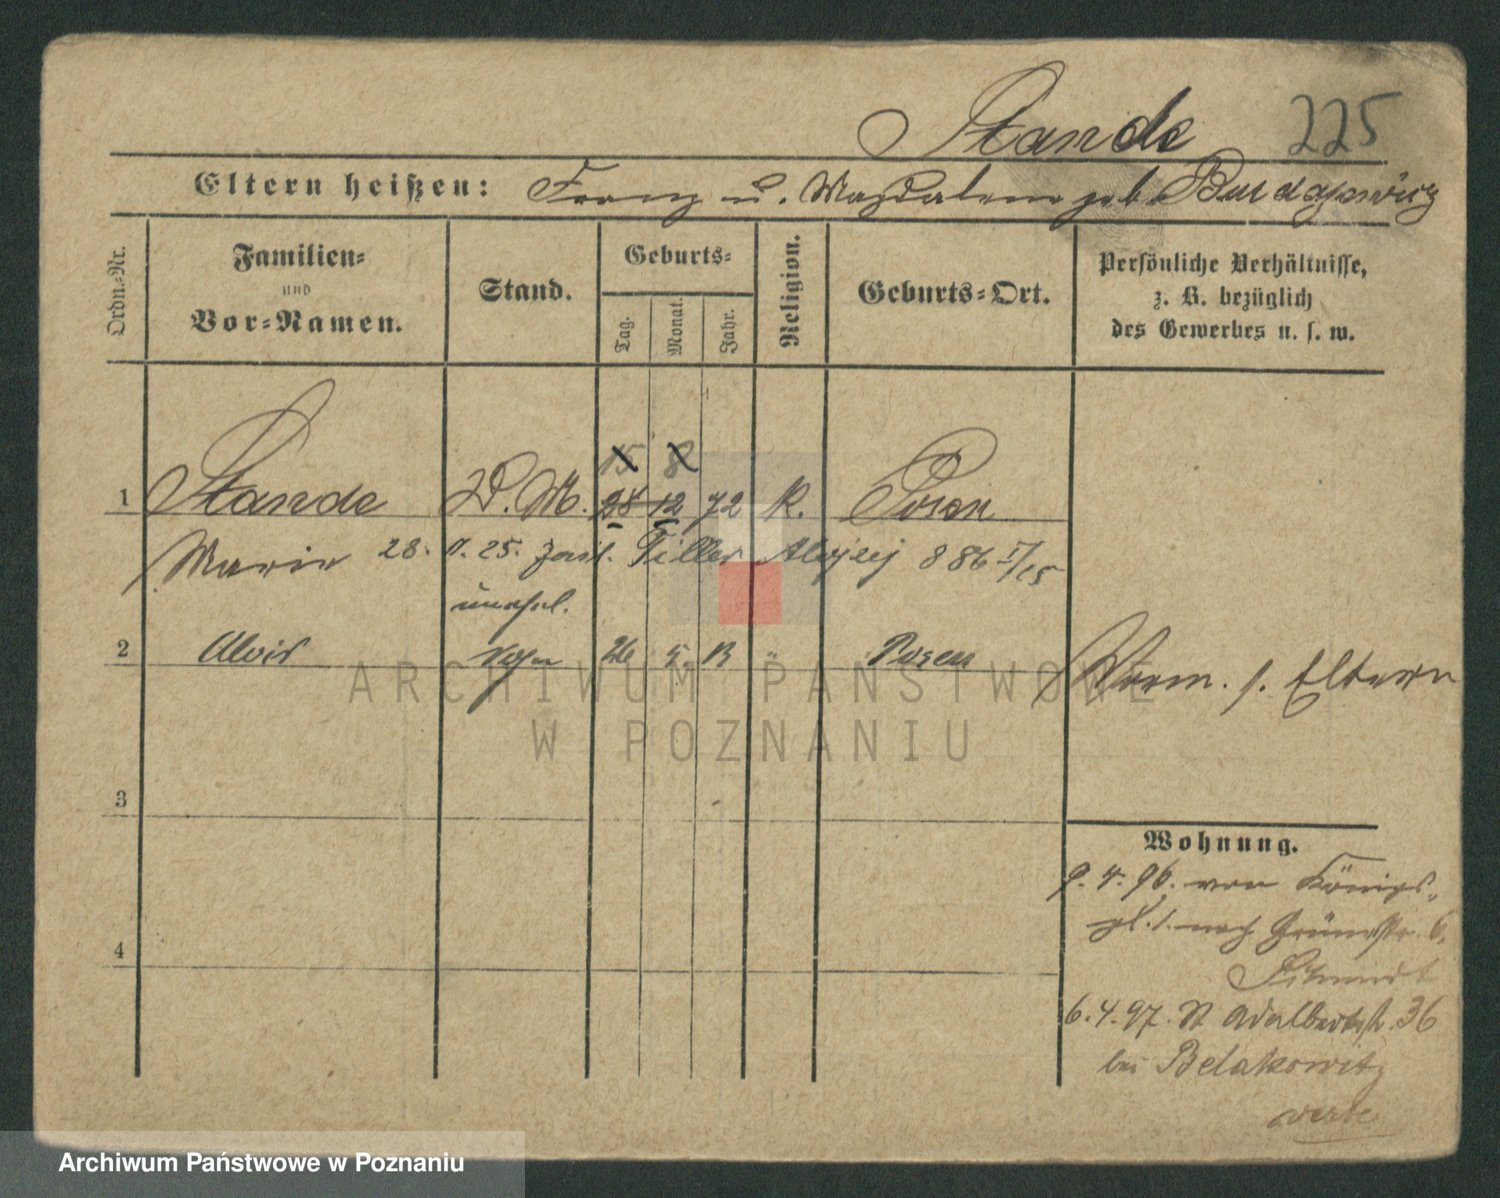 Stande 225
Eltern heißen: Franz u. Magdalena geb. Burdajewicz
Ordn.-Nr.
Familien-
und
Vor-Namen.
Stand.
Geburts-
Tag.
Monat.
Jahr.
Religion.
Geburts-Ort.
Persönliche Verhältnisse,
z. B. bezüglich
des Gewerbes u. s. w.
15 8
1 Stande D. M. 28 12 72 K. Posen
Marie 28. 11. 25. Tiller Alojzy 886 I/25
unehel.
2 Alois Sohn 26 5. 13 " Posen
Vorm. s. Eltern
3
4
Wohnung.
9. 4. 96. von Königs-
pl. 1. nach Grünestr. 6,
Schmidt
6.4.97. St Adalbertstr. 36
bei Belakowitz
verte
ARCHIWUM PAŃSTWOWE
W POZNANIU
Archiwum Państwowe w Poznaniu